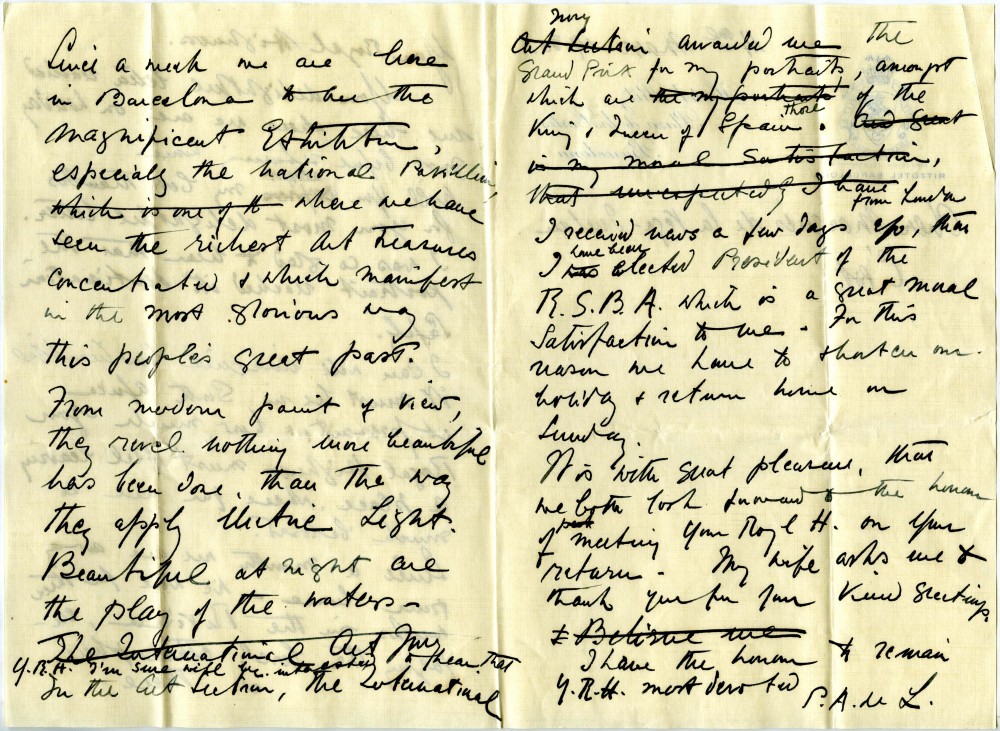 Since a week we are here
in Barcelona to see the
magnificent Exhibition,
especialy the national Pavillion,
which is one of th where we have
seen the richest Art treasures
concentrated & which manifest
in the most glorious way
this people's great past.
From modern point of view,
they revel nothing more beautiful
has been done, than the way
they apply Electric Light.
Beautiful at night are
the play of the waters -
The International Art Jury
Y.R.H. I'm sure will be interested to hear that
In the Art Section, the International
Jury
Art Section awarded me the
Grand Prix for my portraits, amongst
which are the my portraits those of the
King & Queen of Spain. And great
is my moral Satisfaction,
that unexpectedly I have from London
I received news a few days ago, that
I was have been elected President of the
R.S.B.A. which is a great moral
Satisfaction to me - For this
reason we have to shorten our
holiday & return home on
Sunday.
It is with great pleasure, that
we both look forward to the honour
of meeting Your Royl H. on your
return - My wife asks me to
thank you for your Kind Greetings.
& Believe me
I have the honour to remain
Y.R.H. most devoted
P.A. de L.